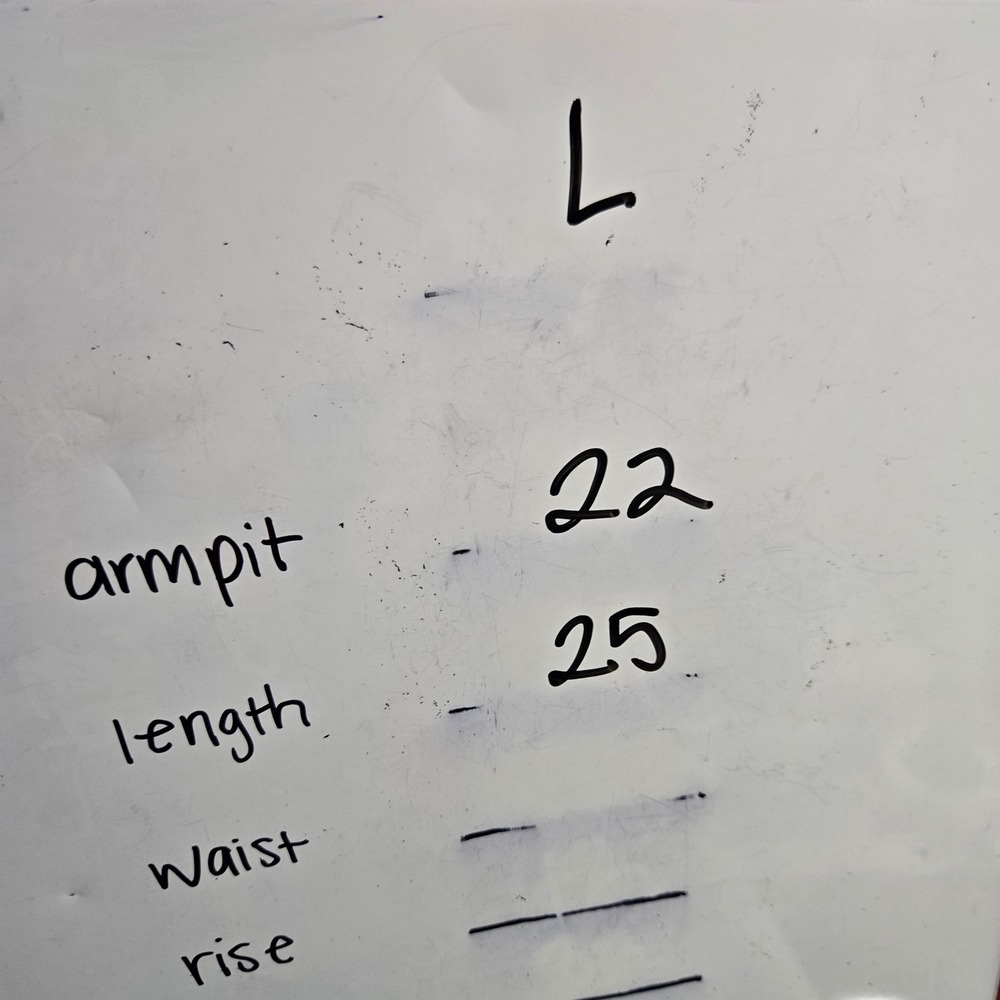 L
armpit 22
length 25
waist
rise